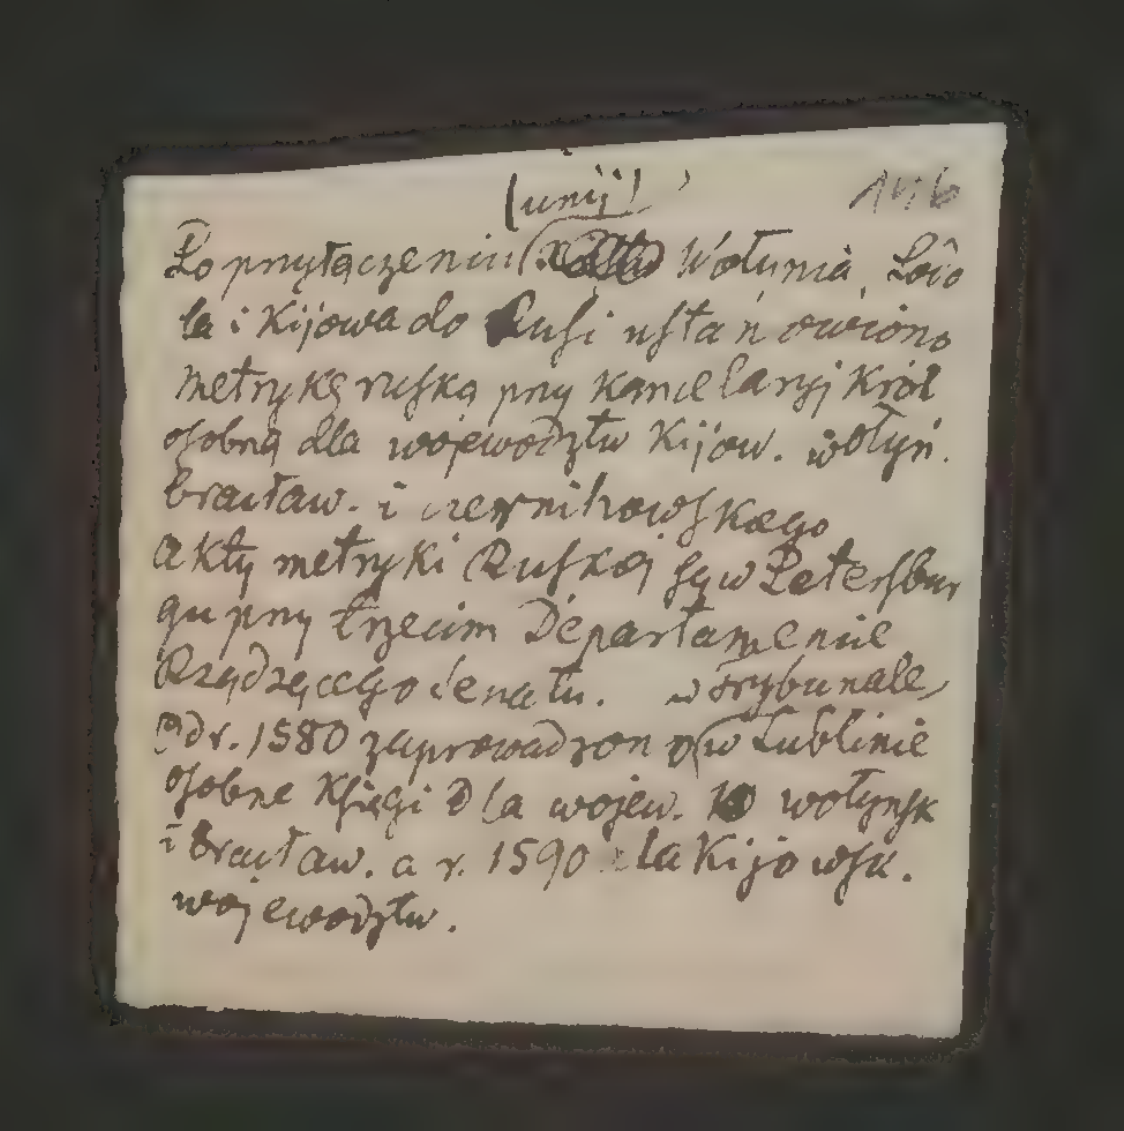 (unij)
146
Po przyłączeniu Wołynia, Podo
la i Kijowa do Rusi ustanowiono
metrykę ruską przy kancelaryj Król
osobną dla wojewodztw Kijow. wołyń.
bracław. i czernihowskiego
akty metryki Ruskiej są w Petersbur
gu przy trzecim Departamencie
Rządzącego Senatu. w Trybunale
Od r. 1580 zaprowadzono w Lublinie
osobne Księgi dla wojew. wołyńsk
i bracław. a r. 1590 dla Kijowsk.
wojewodztw.